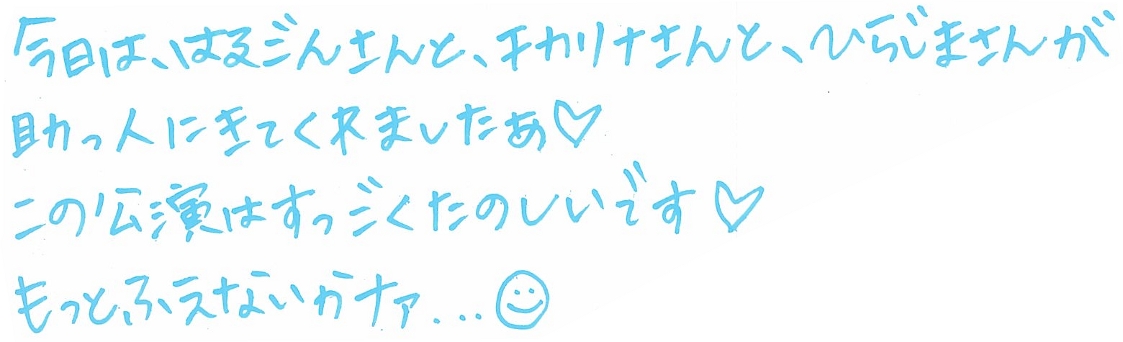 今日は、はるごんさんと、チカリナさんと、ひらじまさんが
助っ人にきてくれましたあ♡
この公演はすっごくたのしいです♡
もっとふえないかナァ...☺